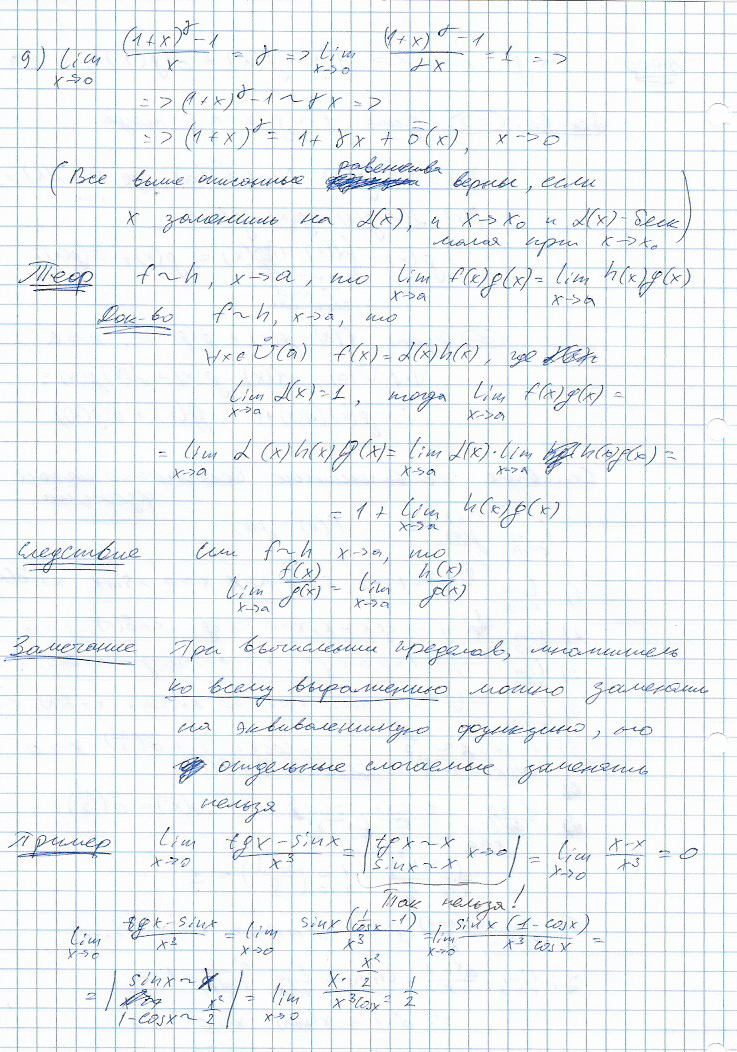 9) lim x→0 ((1+x)^γ - 1)/x = γ => lim x→0 ((1+x)^γ - 1)/γx = 1 =>
=> (1+x)^γ - 1 ~ γx =>
=> (1+x)^γ = 1 + γx + ō(x), x→0
(Все выше описанные равенства верны, если
x заменить на α(x), и x→x₀ и α(x) - беск
малая при x→x₀)
Теор f~h, x→a, то lim x→a f(x)g(x) = lim x→a h(x)g(x)
Док-во f~h, x→a, то
∀x∈Ů(a) f(x) = α(x)h(x), где
lim x→a α(x) = 1, тогда lim x→a f(x)g(x) =
= lim x→a α(x)h(x)g(x) = lim x→a α(x) · lim x→a h(x)g(x) =
= 1 + lim x→a h(x)g(x)
Следствие Если f~h x→a, то
lim x→a f(x)/g(x) = lim x→a h(x)/g(x)
Замечание При вычислении пределов, множитель
ко всему выражению можно заменять
на эквивалентную функцию, но
отдельные слагаемые заменять
нельзя
Пример lim x→0 (tgx - sinx)/x³ = | tgx~x sinx~x x→0 | = lim x→0 (x-x)/x³ = 0
Так нельзя!
lim x→0 (tgx - sinx)/x³ = lim x→0 (sinx(1/cosx - 1))/x³ = lim x→0 (sinx(1-cosx))/(x³cosx) =
= | sinx~x 1-cosx~x²/2 | = lim x→0 (x · x²/2)/(x³cosx) = 1/2